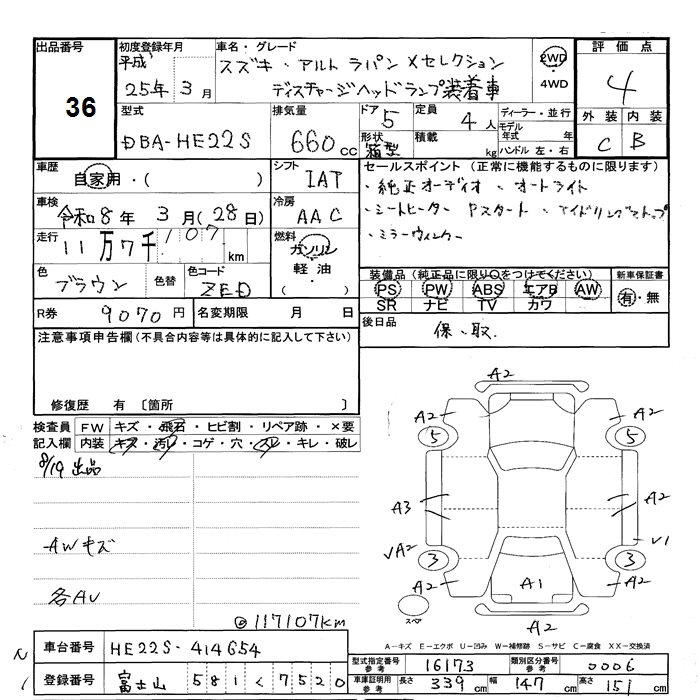 出品番号
36
初度登録年月
平成
25年 3月
車名・グレード
スズキ・アルト ラパン Xセレクション
ディスチャージヘッドランプ装着車
2WD
・
4WD
評価点
4
外装 内装
C B
型式
DBA-HE22S
排気量
660cc
ドア
5
形状
箱型
定員
4人
積載
kg
ディーラー・並行
モデル
年式 年
ハンドル 左・右
車歴
自家用・( )
シフト
IAT
車検
令和8年 3月(28日)
冷房
AAC
走行
11万7千107km
燃料
ガソリン
軽油
( )
色
ブラウン
色替
色コード
ZED
R券
9070円
名変期限 月 日
セールスポイント(正常に機能するものに限ります)
・純正オーディオ ・オートライト
・シートヒーター Pスタート ・アイドリングストップ
・ミラーウィンカー
装備品(純正品に限り○をつけてください)
PS PW ABS エアB AW
SR ナビ TV カワ
新車保証書
有・無
後日品
保、取.
注意事項申告欄(不具合内容等は具体的に記入して下さい)
修復歴 有 〔箇所 〕
検査員
記入欄
FW キズ・飛石・ヒビ割・リペア跡・×要
内装 キズ・汚レ・コゲ・穴・スレ・キレ・破レ
8/19 出品
AWキズ
各AU
◎117107km
A2
A2 A2
5 5
A3 A2
VA2 V1
3 3
A2 A1 A2
スペア
A2
A-キズ E-エクボ U-凹み W-補修跡 S-サビ C-腐食 XX-交換済
車台番号
HE22S-414654
登録番号
富士山 581 く 7520
型式指定番号
参考
16173
類別区分番号
参考
0006
車庫証明用
参考
長さ 339cm 幅 147cm 高さ 151cm